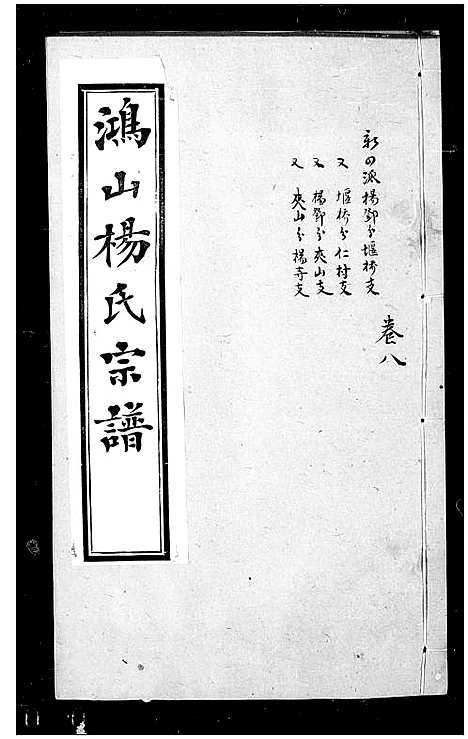 卷八
新四派楊鄧分堰橋支
又 堰橋分仁村支
又 楊鄧分夾山支
又 夾山分楊寺支
鴻山楊氏宗譜